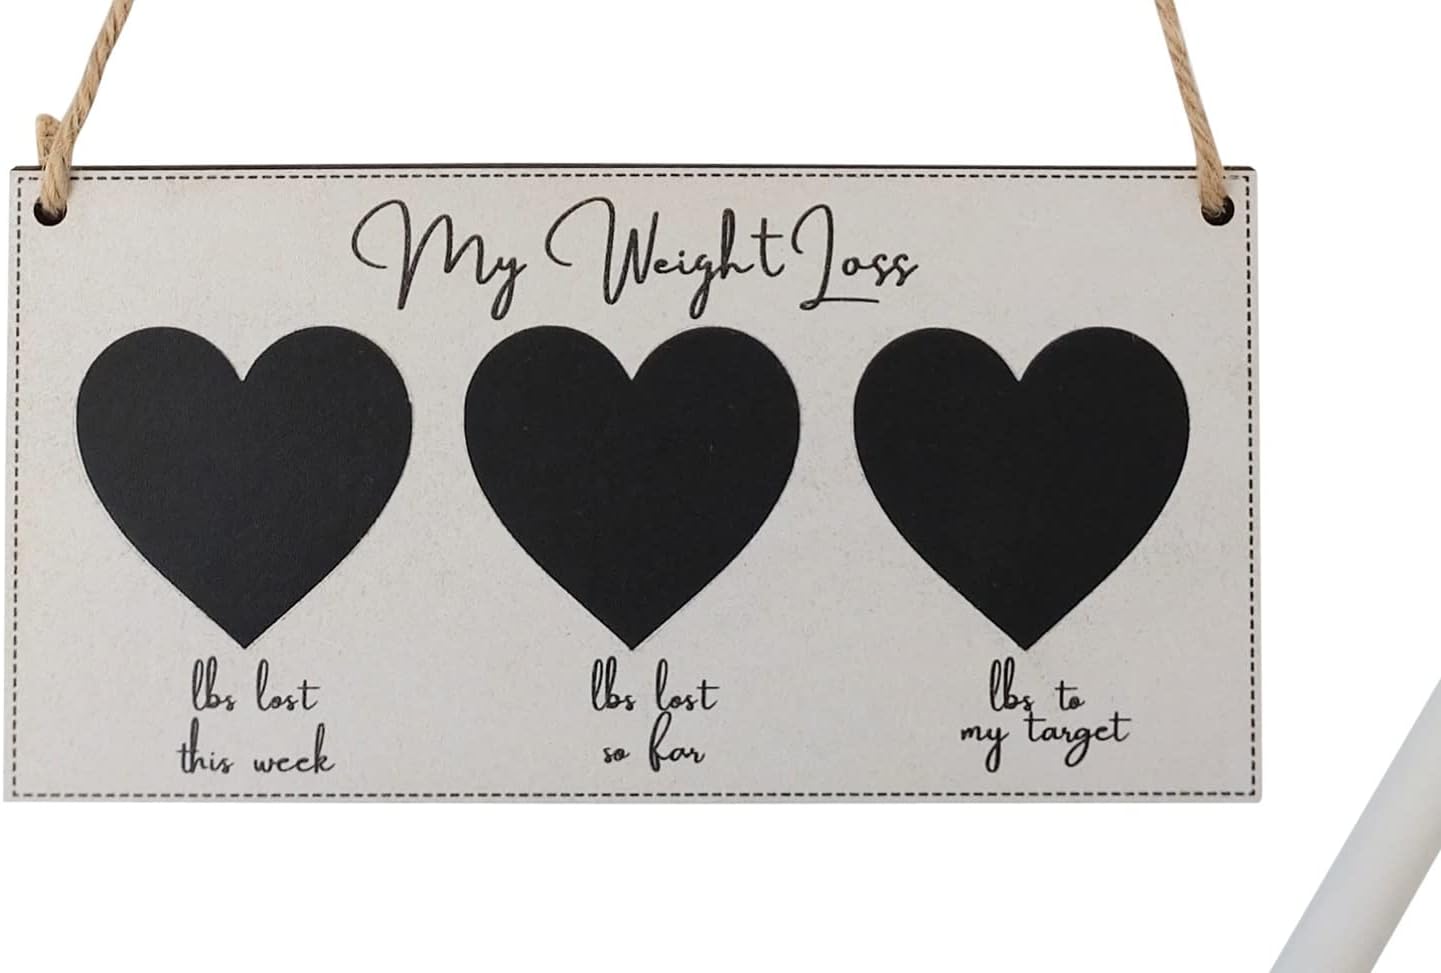 My Weight Loss
lbs lost
this week
lbs lost
so far
lbs to
my target